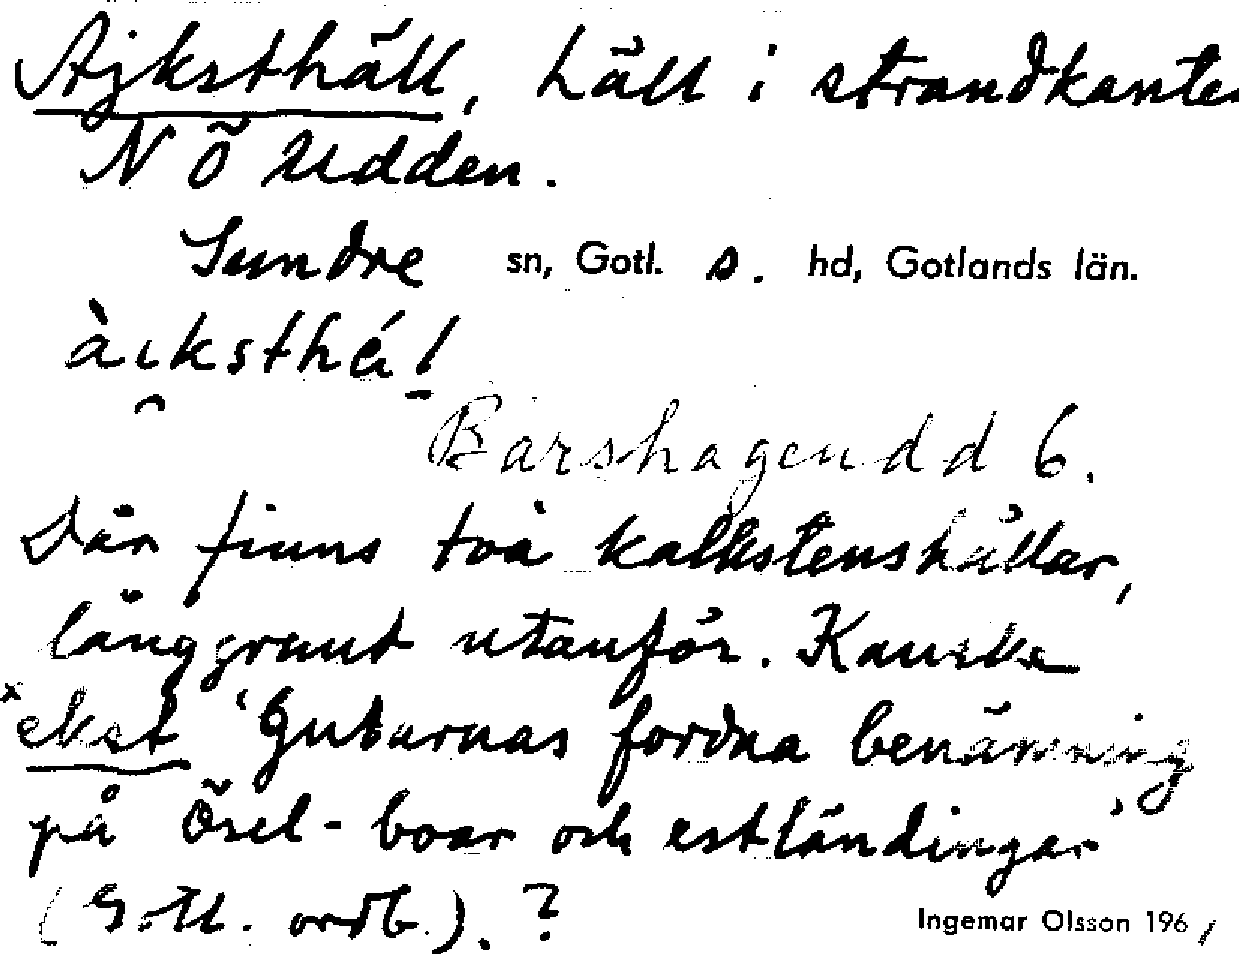 Ajksthäll, häll i strandkanten
N Ö Udden.
Sundre sn, Gotl. s. hd, Gotlands län.
àıksthá̈l
Barshageudd 6.
Där finns två kalkstenshällar,
långgrunt utanför. Kanske
ˣekst 'Gutarnas fordna benämning
på Ösel-boar och estländingar'
(Gotl. ordb.). ?
Ingemar Olsson 1961